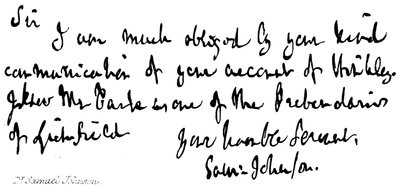 Sir
I am much obliged by your kind
communication of your account of Hinkley.
I knew Mr Park as one of the Prebendaries
of Lichfield your humble servant,
Sam: Johnson.
Dr Samuel Johnson